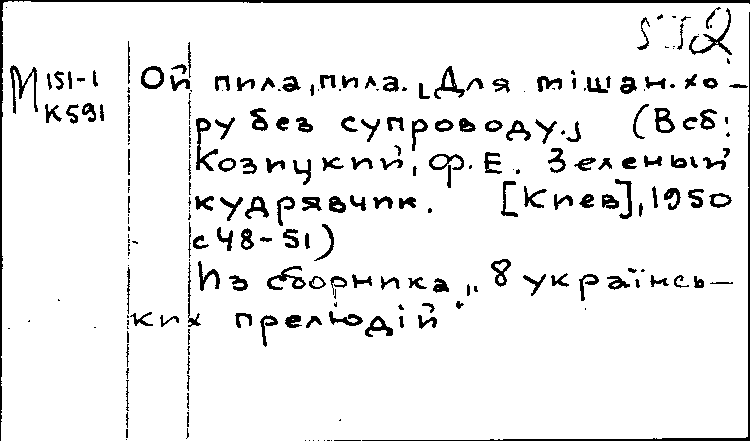 552
М 151-1
К591
Ой пила, пила. [Для мішан. хо-
ру без супроводу.] (В сб:
Козицкий, Ф. Е. Зеленый
кудрявчик. [Киев], 1950
с 48-51)
Из сборника „8 українсь-
ких прелюдій"